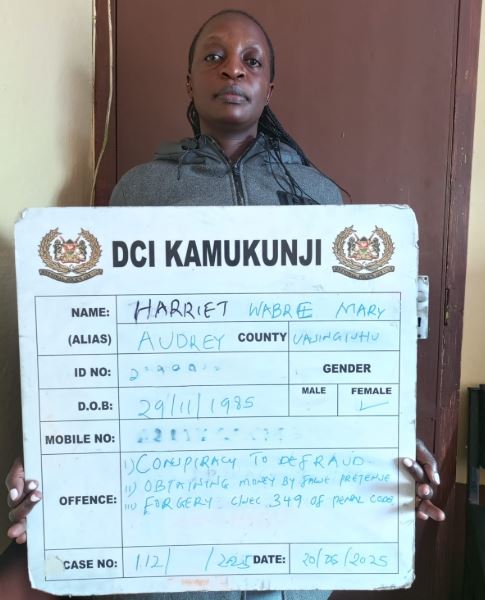 DCI KAMUKUNJI
NAME: HARRIET WABREE MARY
(ALIAS) AUDREY COUNTY UASINGISHU
ID NO: GENDER
D.O.B: 29/11/1985 MALE FEMALE ✓
MOBILE NO:
OFFENCE: i) CONSPIRACY TO DEFRAUD
ii) OBTAINING MONEY BY FALSE PRETENSE
iii) FORGERY 349 OF PENAL CODE
CASE NO: 112/ /2025 DATE: 20/05/2025